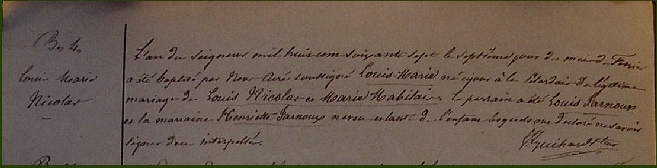 B. 4.
Louis Marie
Nicolas
L'an du Seigneur mil huit cent soixante sept le septième jour du mois de Février
a été baptisé par Nous curé soussigné Louis-Marie né ce jour à la Bardais du légitime
mariage de Louis Nicolas et Marie Mabilais le parrain a été Louis Jarnoux
et la marraine Henriette Jarnoux neveu et tante de l'enfant lesquels ont déclaré ne savoir
signer de ce interpellés.
Guihard